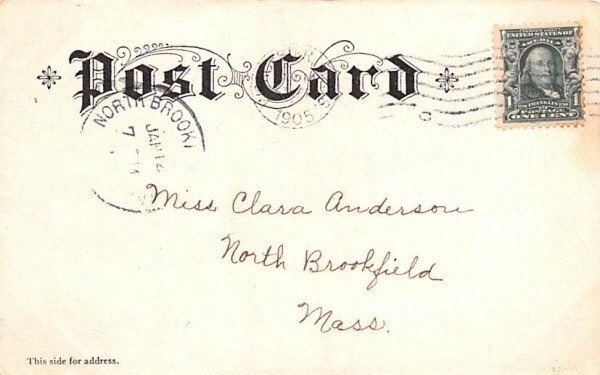 Post Card
1905
NORTH BROOK
JAN 12
7
UNITED STATES OF
AMERICA
1 FRANKLIN
ONE CENT
Miss Clara Anderson
North Brookfield
Mass.
This side for address.